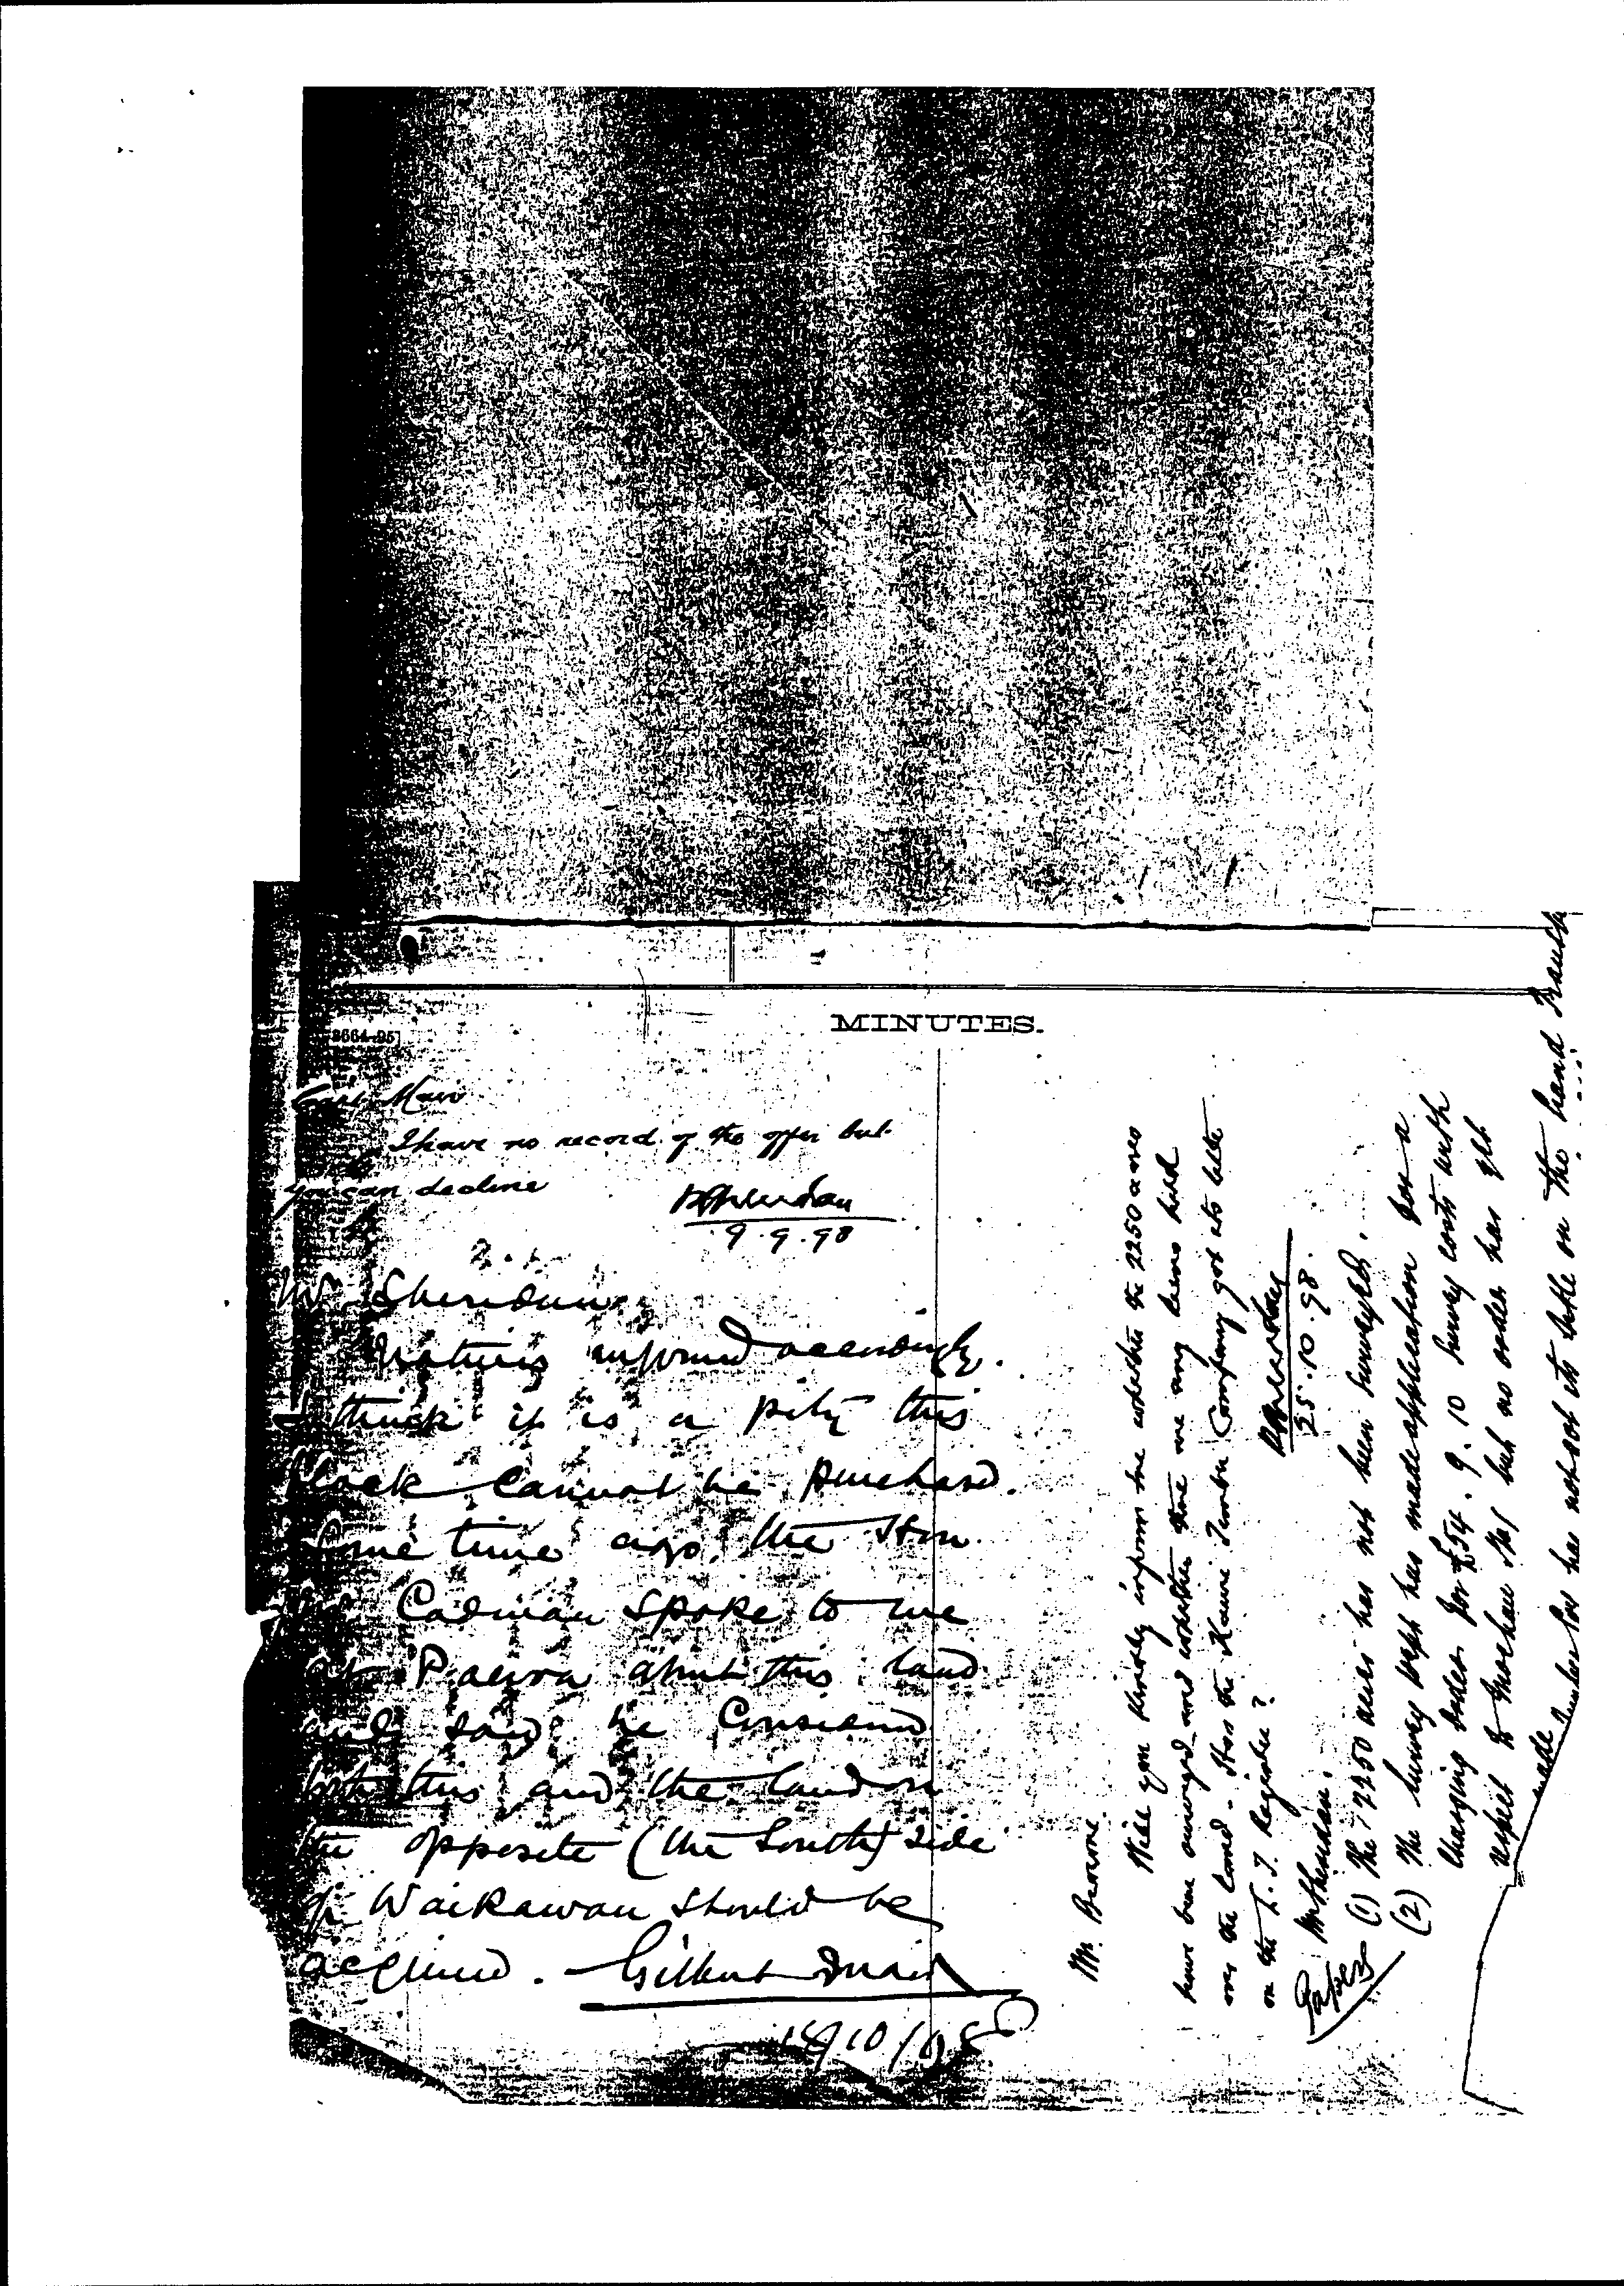 MINUTES.
3664-95]
Capt. Mair
I have no record of the offer but
you can decline
P Sheridan
9.9.98
Mr. Sheridan
Natives informed accordingly.
I think it is a pity this
block cannot be purchased.
Some time ago, the Hon
Mr Cadman spoke to me
at Paeroa about this land
and said he considered
both this and the land on
the opposite (the South) side
of Waikawau should be
acquired. Gilbert Mair
18/10/98
Mr. Browne.
Will you kindly inform me whether the 2250 acres
have been surveyed and whether there are any liens held
over the land. Has the Kauri Timber Company got its title
on the L.T. Register?
P Sheridan
25.10.98.
Mr Sheridan.
(1) The 2250 acres has not been surveyed.
(2) The Survey Dept has made application for a
Charging Order for £54.9.10 survey costs with
respect to Moehau but no order has yet
made
has not got its title on the Land Transfer